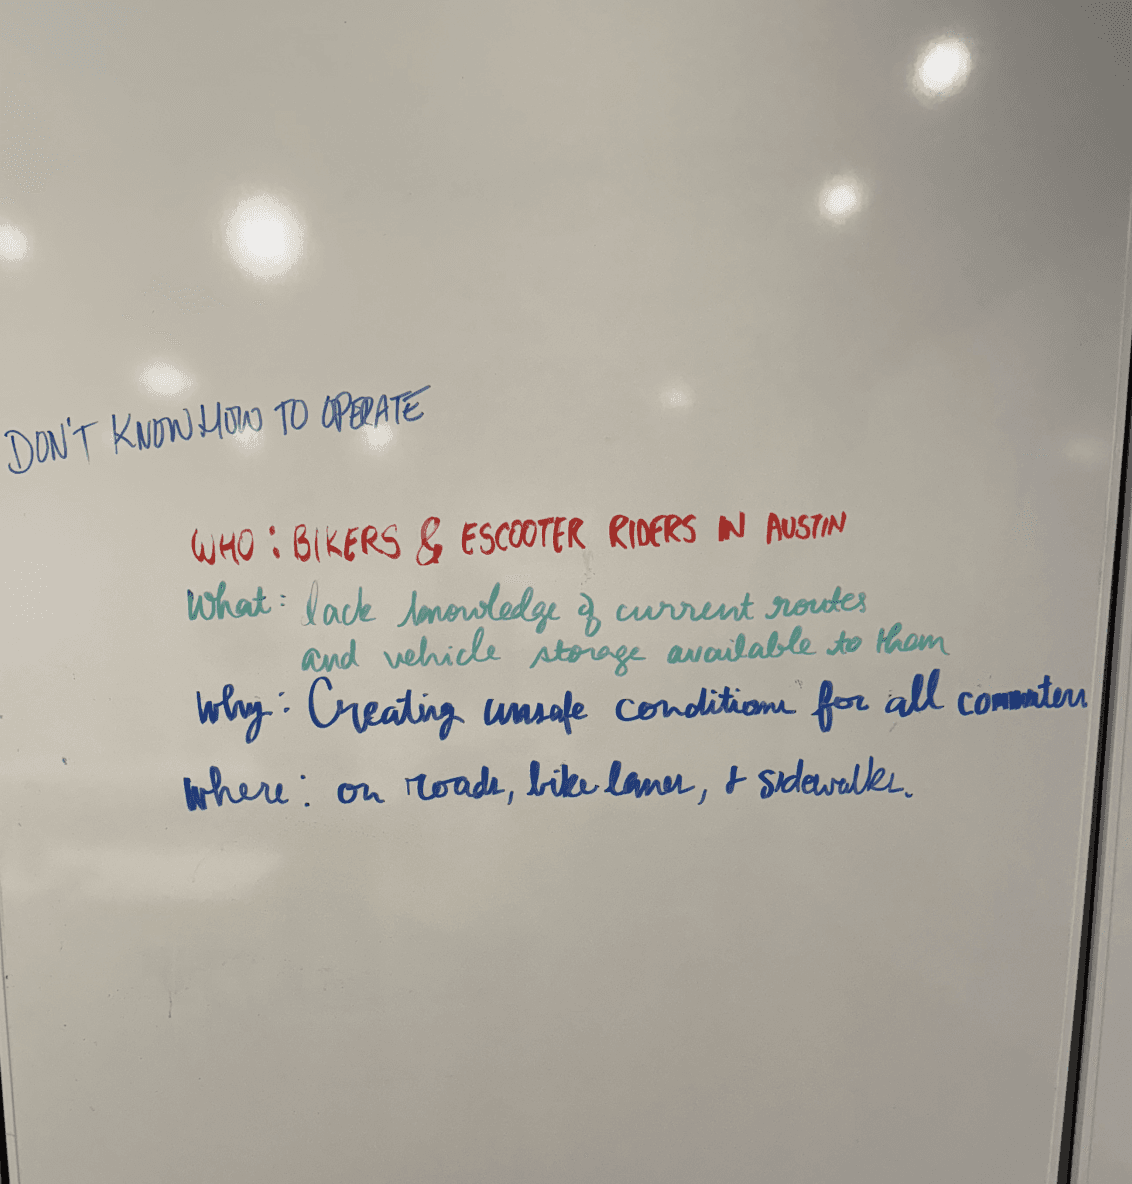 DON'T KNOW HOW TO OPERATE
WHO: BIKERS & ESCOOTER RIDERS IN AUSTIN
What: lack knowledge of current routes
and vehicle storage available to them
Why: Creating unsafe conditions for all commuters
where: on roads, bike lanes, & sidewalks.